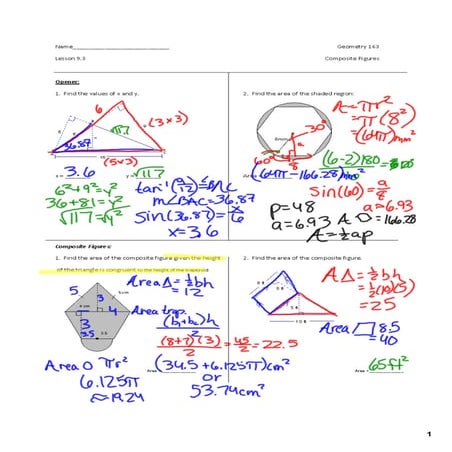 Name
Geometry 163
Lesson 9.3
Composite Figures
Opener:
1. Find the values of x and y.
6
√117
=(3x3)
36.87
(5x3)
3.6
√117
6²+9²=y²
36+81=y²
√117=√y²
m∠BAC=36.87
x=3.6
2. Find the area of the shaded region:
A=πr²
=π(8²)
=(64π)mm²
30°
60°
a
(64π-166.28)mm²
sin(60)=
p=48
a=6.93
a=6.93
=166.28
A=½ap
Composite Figures:
1. Find the area of the composite figure given the height
of the triangle is congruent to the height of the trapezoid.
5
3
4 cm
4
3
3.5
Area △=½bh
=12
Area trap.
(b₁+b₂)h
2
(8+7)(3)
2
=45
2
=22.5
Area O πr²
6.125π
≈19.24
(34.5+6.125π)cm²
or
53.74cm²
2. Find the area of the composite figure.
A△=½bh
=½(10)(5)
=25
Area
8.5
=40
Area
65ft²
1